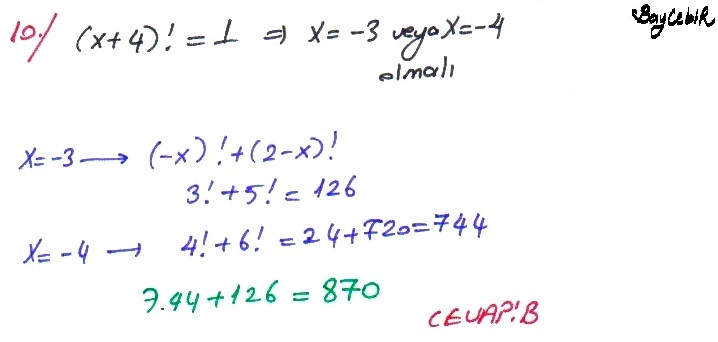 BayCebiR
10./ (x+4)! = 1 ⇒ x = -3 veya x = -4
olmalı
x = -3 → (-x)! + (2-x)!
3! + 5! = 126
x = -4 → 4! + 6! = 24 + 720 = 744
7.44 + 126 = 870
CEVAP: B